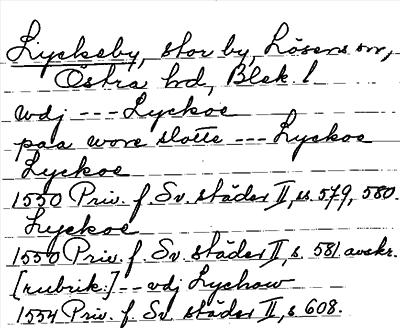 Lyckeby, stor by, Lösens sn,
Östra hd, Blek. l
udj --- Lyckoe
paa wore slotte --- Lyckoe
Lyckoe
1550 Priv. f. Sv. städer II, ss. 579, 580.
Lyckoe
1550 Priv. f. Sv. städer II, s. 581 avskr.
[rubrik:] -- udj Lychow
1554 Priv. f. Sv. städer II, s 608.